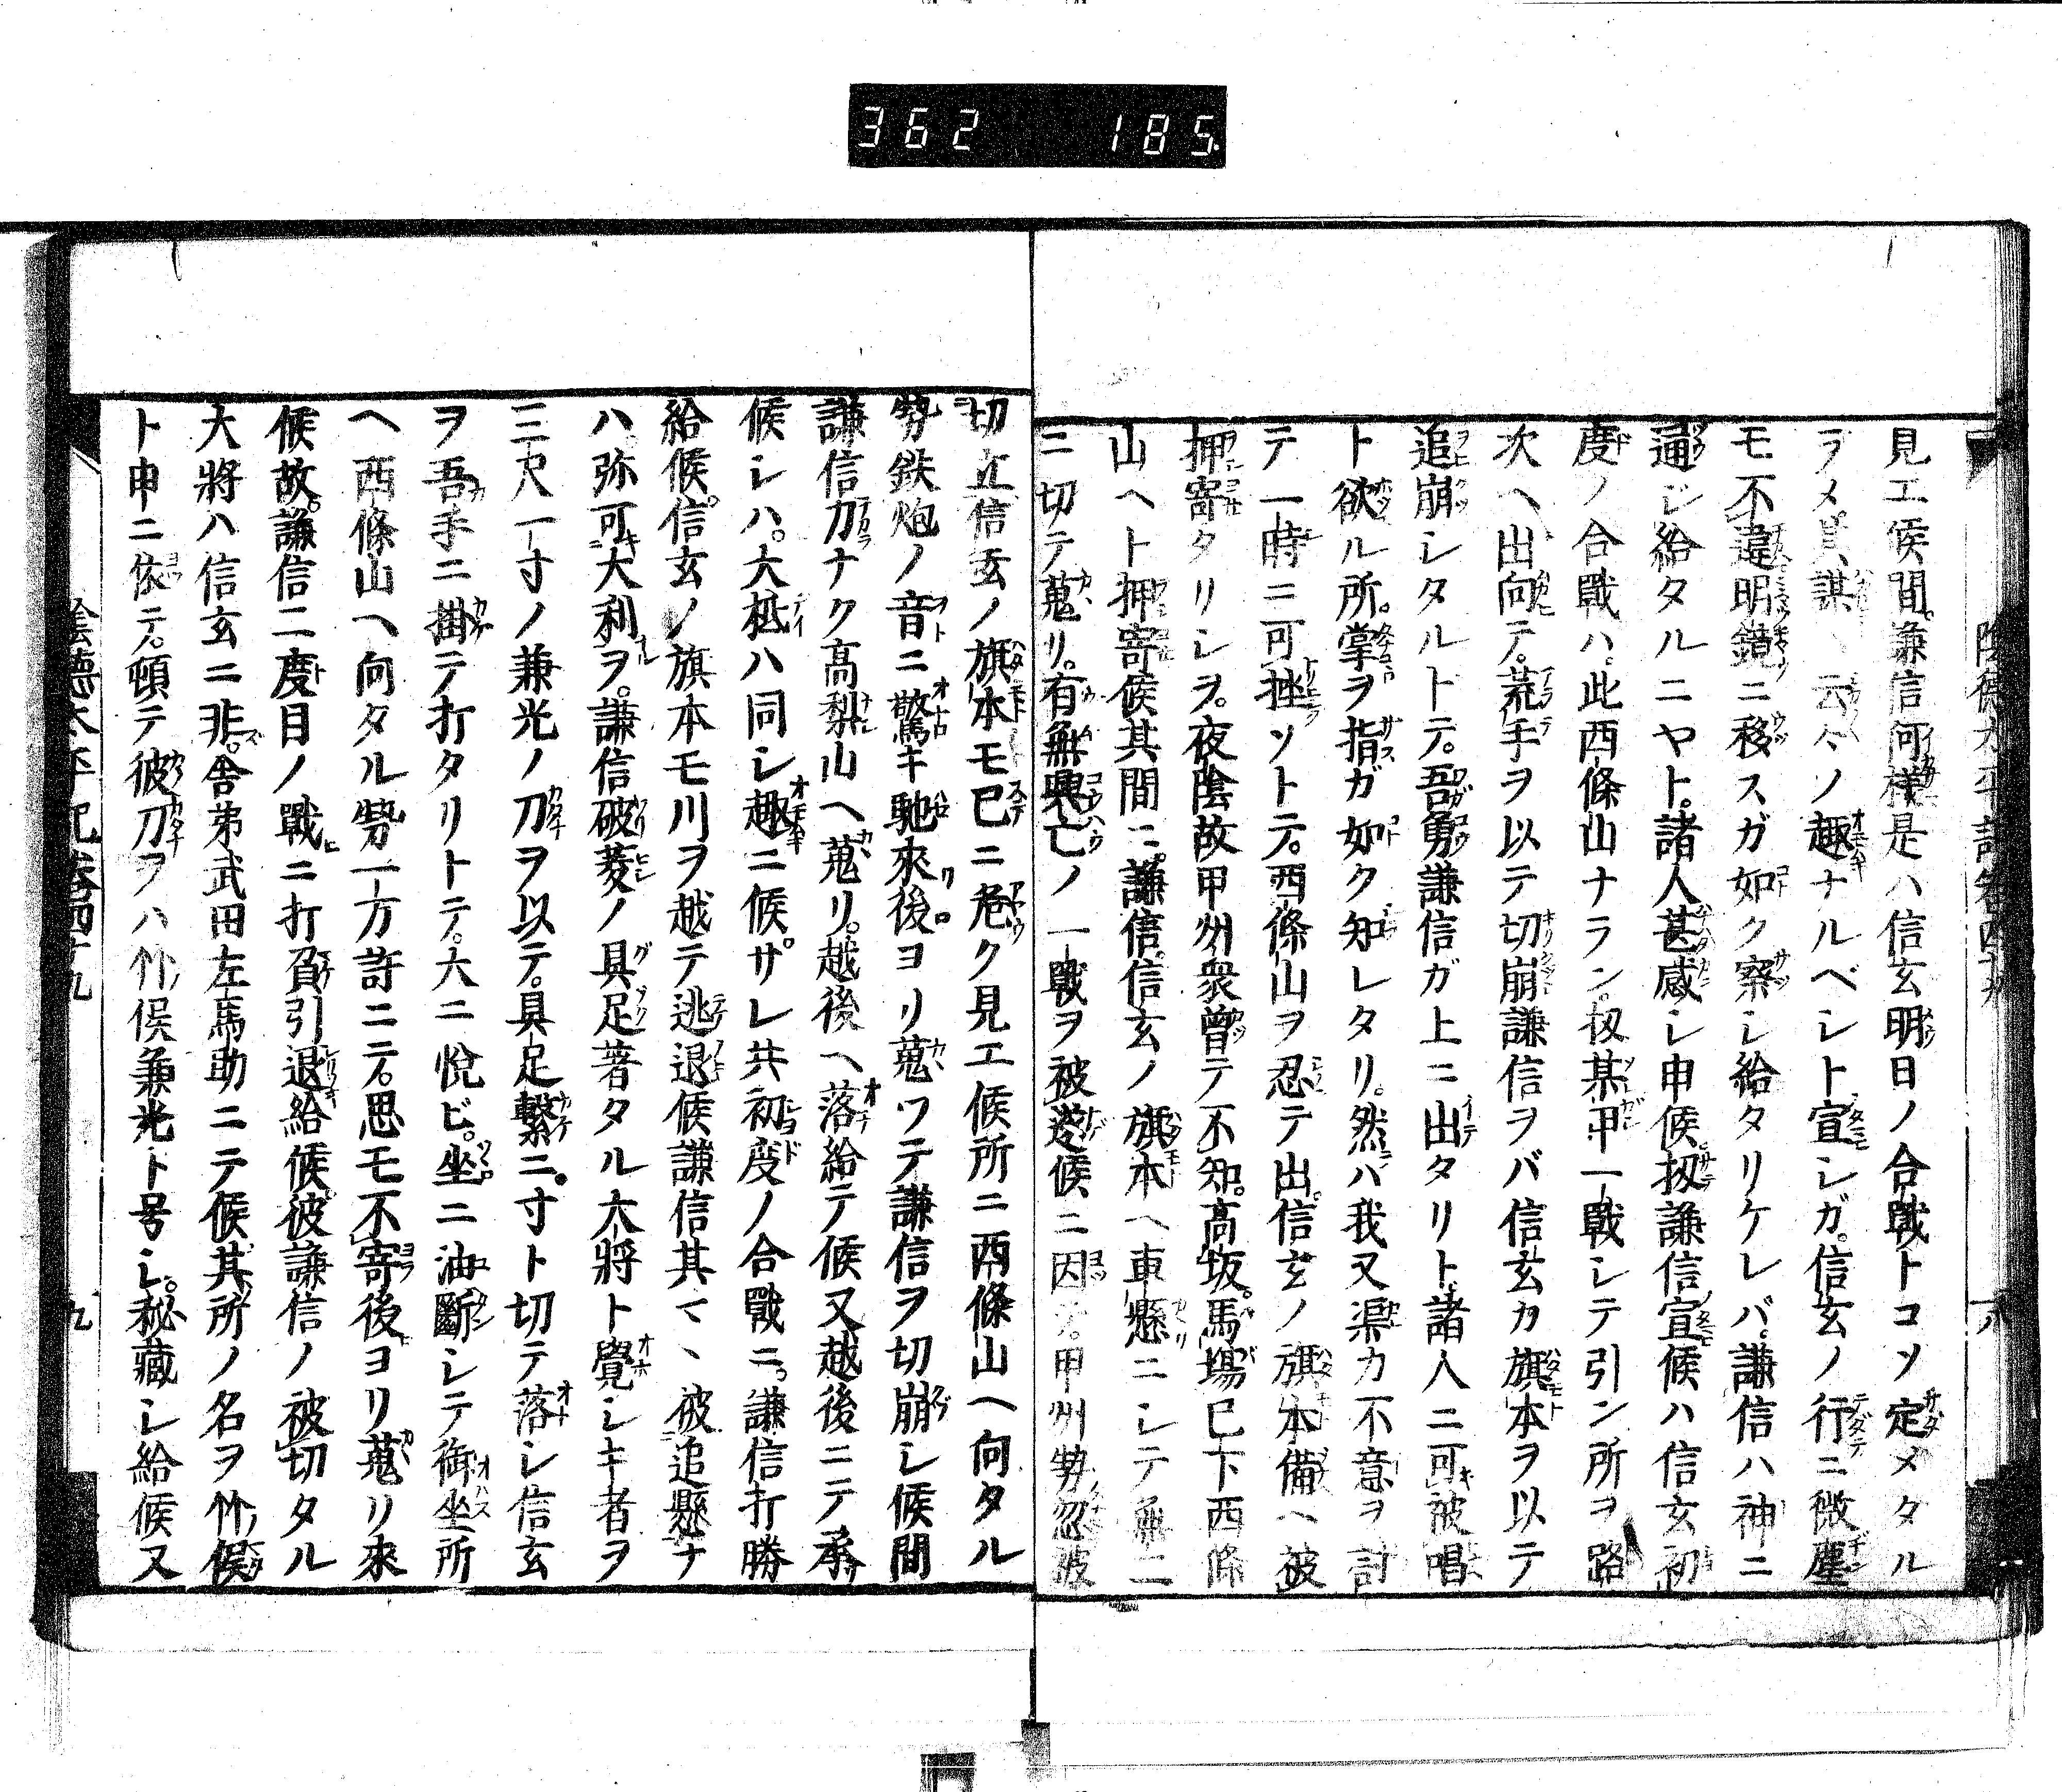 362 185
陰德太平記卷四十九 八
見エ候間。謙信何樣是ハ信玄明日ノ合戰トコソ定メタル
ヲメ其謀ハ云々ノ趣ナルベシト宣シガ。信玄ノ行ニ微塵
モ不違明鏡ニ移スガ如ク察シ給タリケレバ。謙信ハ神ニ
通シ給タルニヤト。諸人甚感シ申候扨謙信宣候ハ信玄初
度ノ合戰ハ。此西條山ナラン。扨某甲一戰シテ引ン所ヲ路
次ヘ出向テ。荒手ヲ以テ切崩謙信ヲバ信玄カ旗本ヲ以テ
追崩シタルトテ。吾勇謙信ガ上ニ出タリト諸人ニ可被唱
ト欲ル所。掌ヲ指ガ如ク知レタリ。然ハ我又渠カ不意ヲ討
テ一時ニ可挫ソトテ。西條山ヲ忍テ出。信玄ノ旗本備ヘ被
押寄タリシヲ。夜陰故甲州衆曾テ不知。高坂。馬場已下西條
山ヘト押寄候其間ニ。謙信。信玄ノ旗本ヘ車懸ニシテ無二
ニ切テ蒐リ。有無興亡ノ一戰ヲ被遂候ニ因テ。甲州勢忽被
切立信玄ノ旗本モ已ニ危ク見エ候所ニ西條山ヘ向タル
勢鉄炮ノ音ニ驚キ馳來後ヨリ蒐ツテ謙信ヲ切崩シ候間
謙信力ナク髙梨山ヘ蒐リ。越後ヘ落給テ候又越後ニテ承
候シハ。大柢ハ同シ趣ニ候。サレ共初度ノ合戰ニ。謙信打勝
給候。信玄ノ旗本モ川ヲ越テ逃退候謙信其マヽ被追懸ナ
ハ。弥可大利ヲ。謙信破菱ノ具足著タル大將ト覺シキ者ヲ
三尺一寸ノ兼光ノ刀ヲ以テ。具足繫ニ。寸ト切テ落シ信玄
ヲ吾手ニ掛テ打タリトテ。大ニ悅ビ。坐ニ油斷シテ御坐所
ヘ西條山ヘ向タル勢一方許ニテ。思モ不寄後ヨリ蒐リ來
候故。謙信二度目ノ戰ニ打負引退給候。彼謙信ノ被切タル
大將ハ信玄ニ非。舍弟武田左馬助ニテ候其所ノ名ヲ竹俣
ト申ニ依テ。頓テ彼刀ヲハ竹俣兼光ト号シ。秘藏シ給候又
陰德太平記卷四十九 九